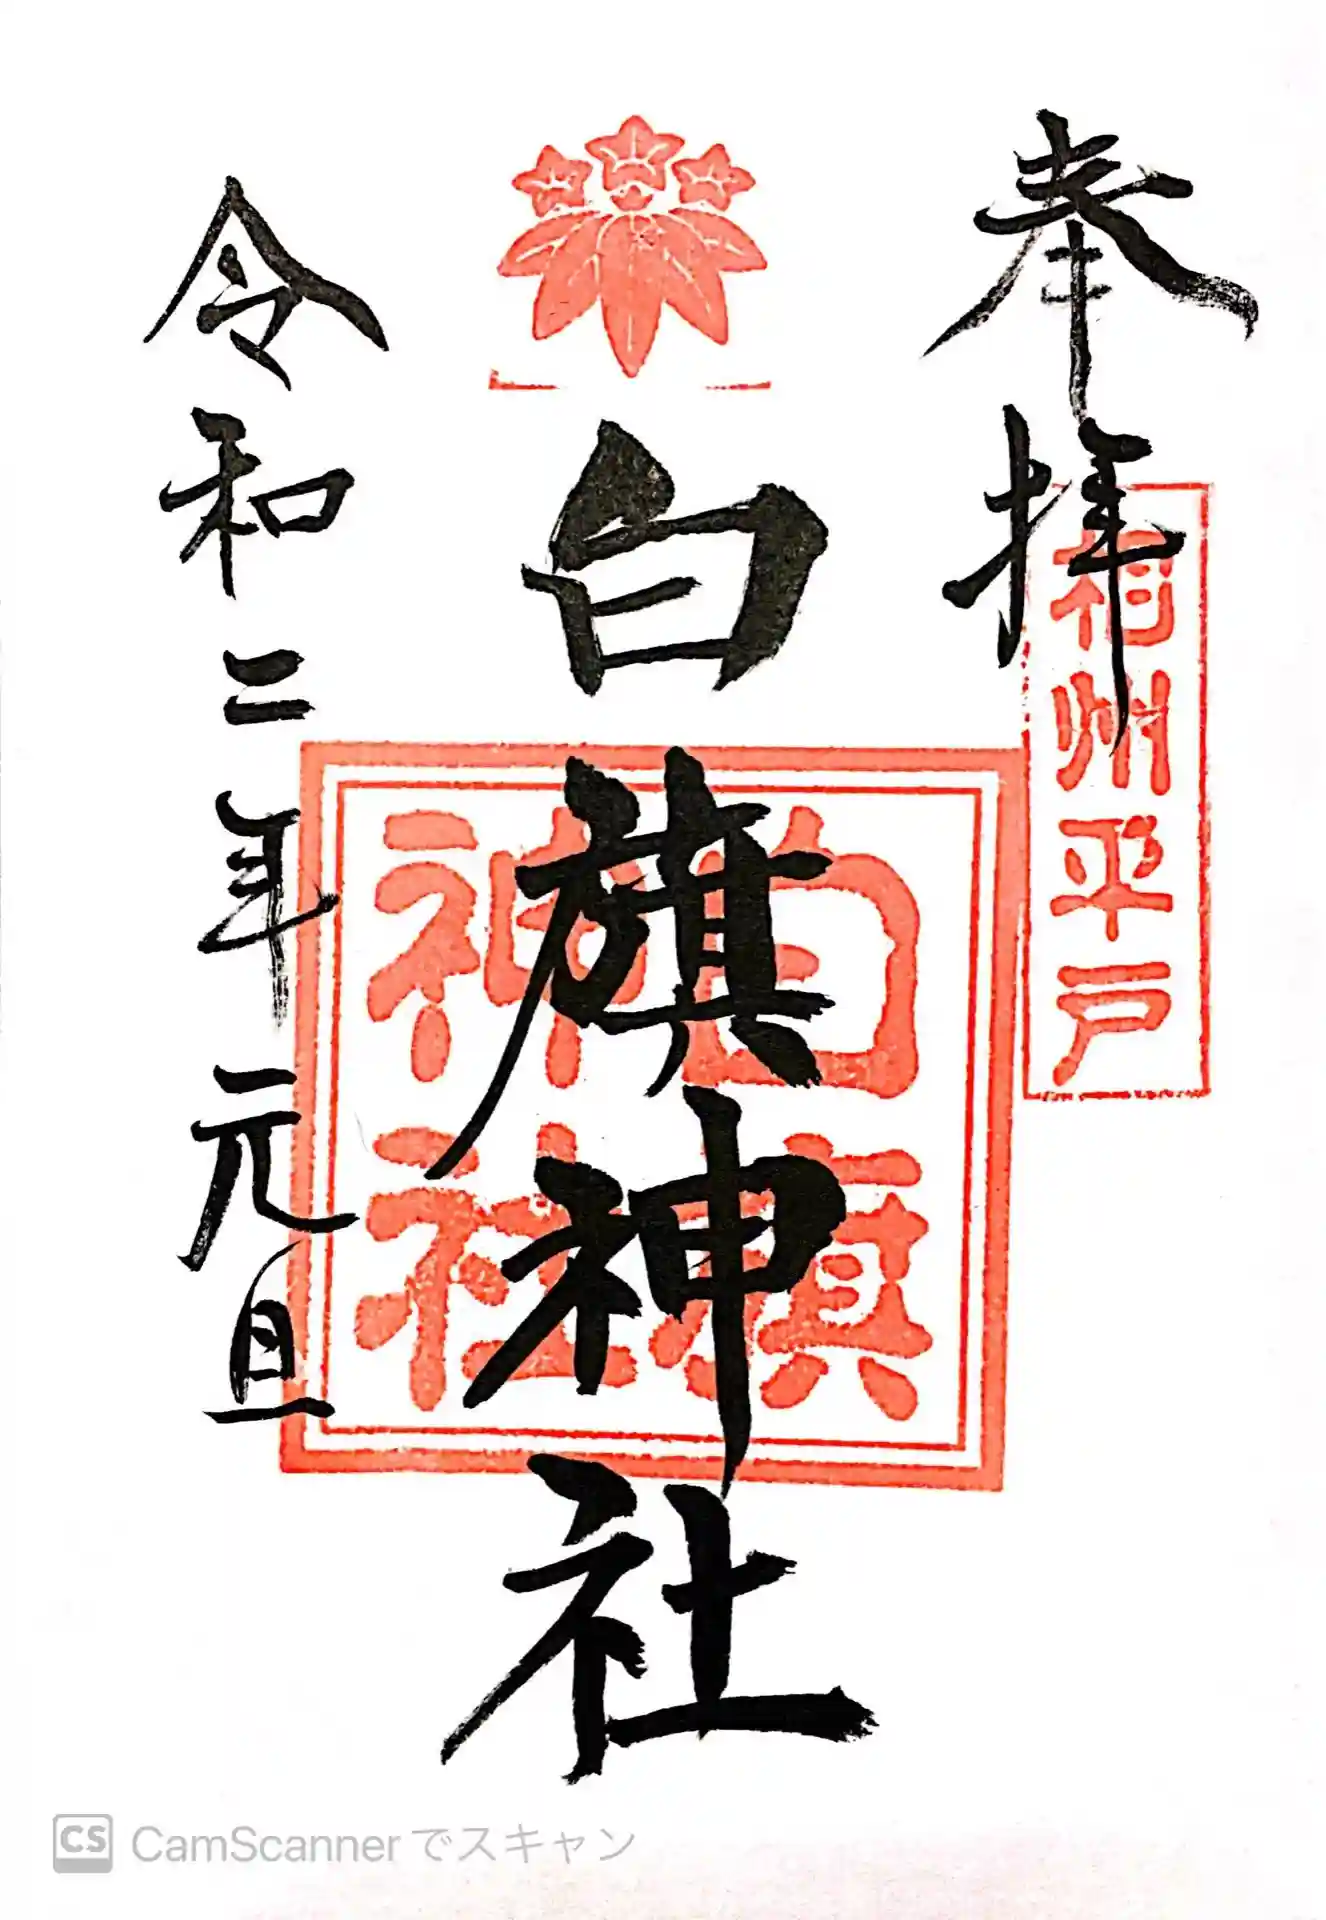 奉拝
相州平戸
白旗神社
白旗
神社
令和二年元旦
CS CamScannerでスキャン